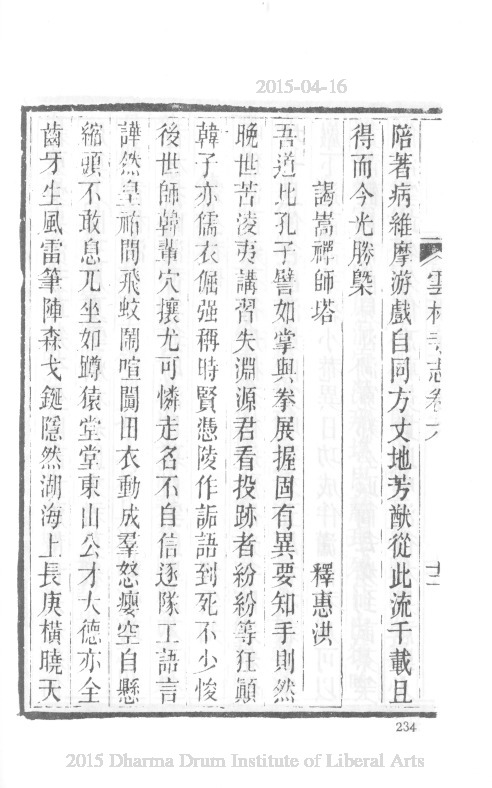 2015-04-16
雲林寺志卷六
十二
陪著病維摩游戲自同方丈地芳猷從此流千載且
得而今光勝槩
謁嵩禪師塔
釋惠洪
吾道比孔子譬如掌與拳展握固有異要知手則然
晚世苦淩夷講習失淵源君看投跡者紛紛等狂顚
韓子亦儒衣倔强稱時賢憑陵作詬語到死不少悛
後世師韓輩穴攘尤可憐走名不自信逐隊工語言
譁然皇祐間飛蚊鬧喧闐田衣動成羣怒癭空自懸
縮頭不敢息兀坐如蹲猿堂堂東山公才大德亦全
齒牙生風雷筆陣森戈鋋隱然湖海上長庚橫曉天
234
2015 Dharma Drum Institute of Liberal Arts